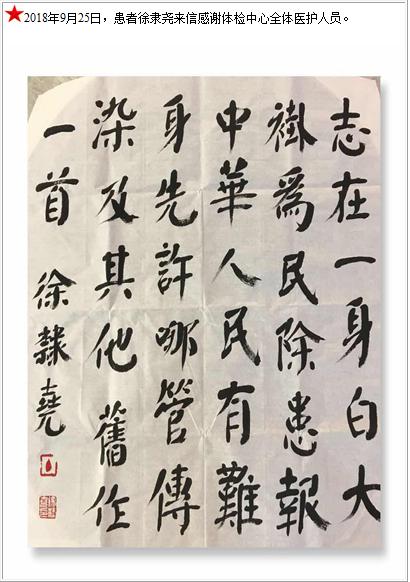 ★2018年9月25日，患者徐隶尧来信感谢体检中心全体医护人员。
志在一身白大
褂為民除患報
中華人民有難
身先許哪管傳
染及其他舊作
一首 徐隸堯